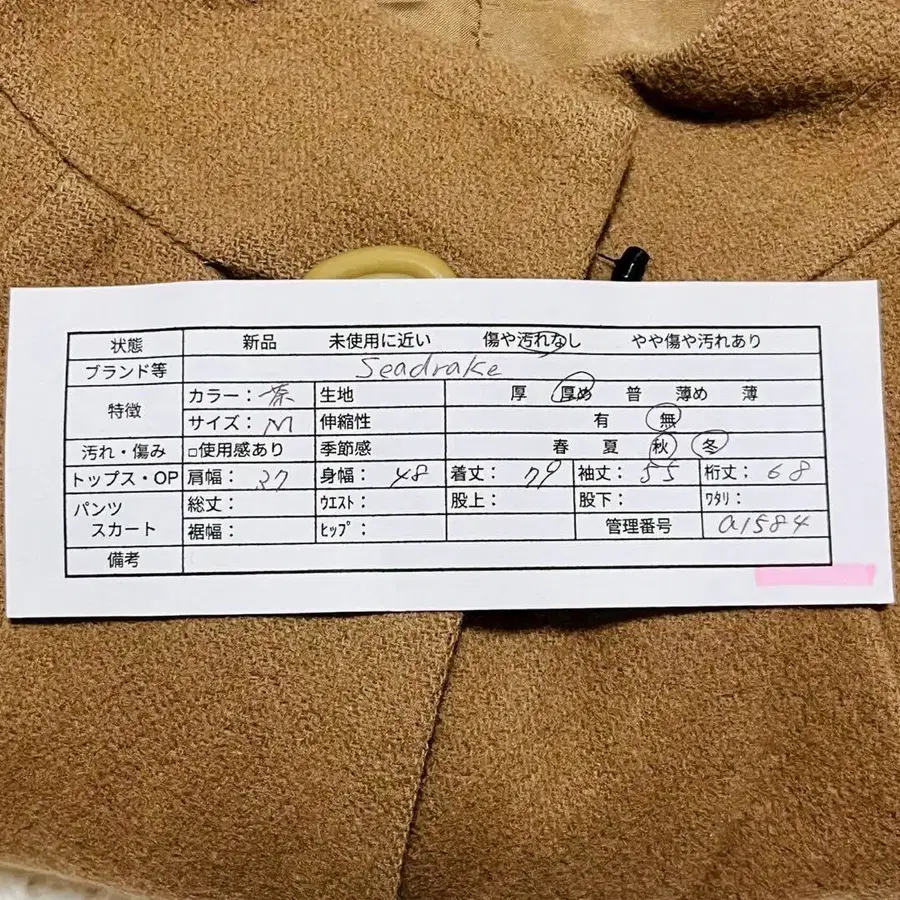 状態 新品 未使用に近い 傷や汚れなし やや傷や汚れあり
ブランド等 Seadrake
特徴 カラー：茶 生地 厚 厚め 普 薄め 薄
サイズ：M 伸縮性 有 無
汚れ・傷み □使用感あり 季節感 春 夏 秋 冬
トップス・OP 肩幅：37 身幅：48 着丈：79 袖丈：55 裄丈：68
パンツ スカート 総丈： ｳｴｽﾄ： 股上： 股下： ﾜﾀﾘ：
裾幅： ﾋｯﾌﾟ： 管理番号 a1584
備考